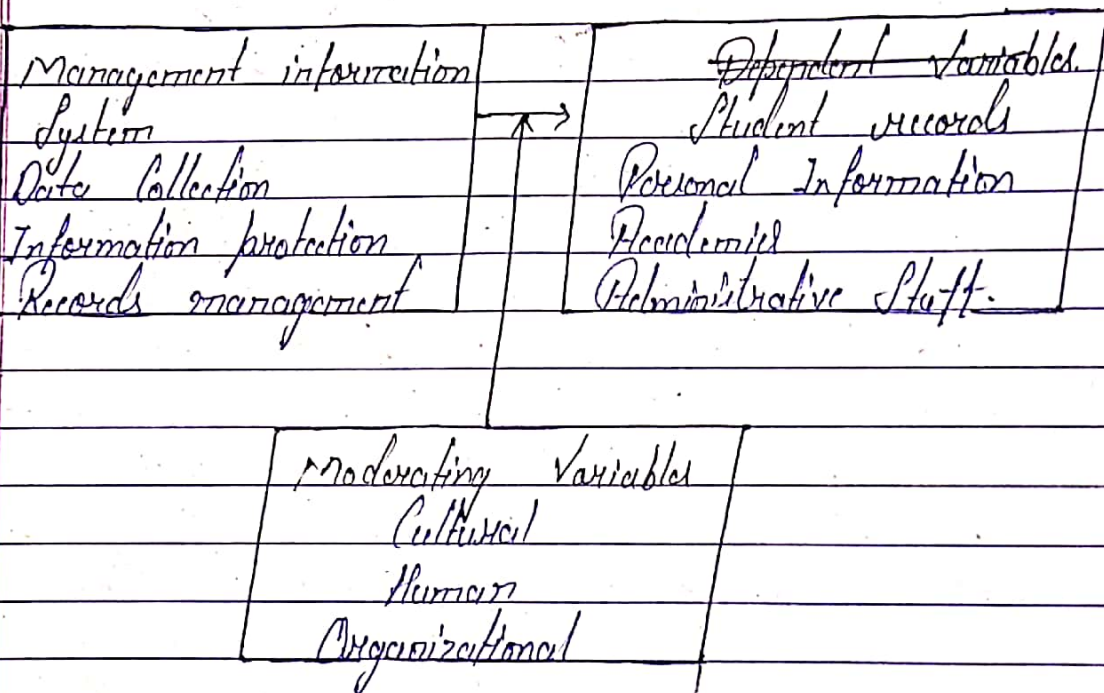 Management information
System
Data Collection
Information protection
Records management
Dependent Variables.
Student records
Personal Information
Academics
Administrative Staff.
Moderating Variables
Cultural
Human
Organizational